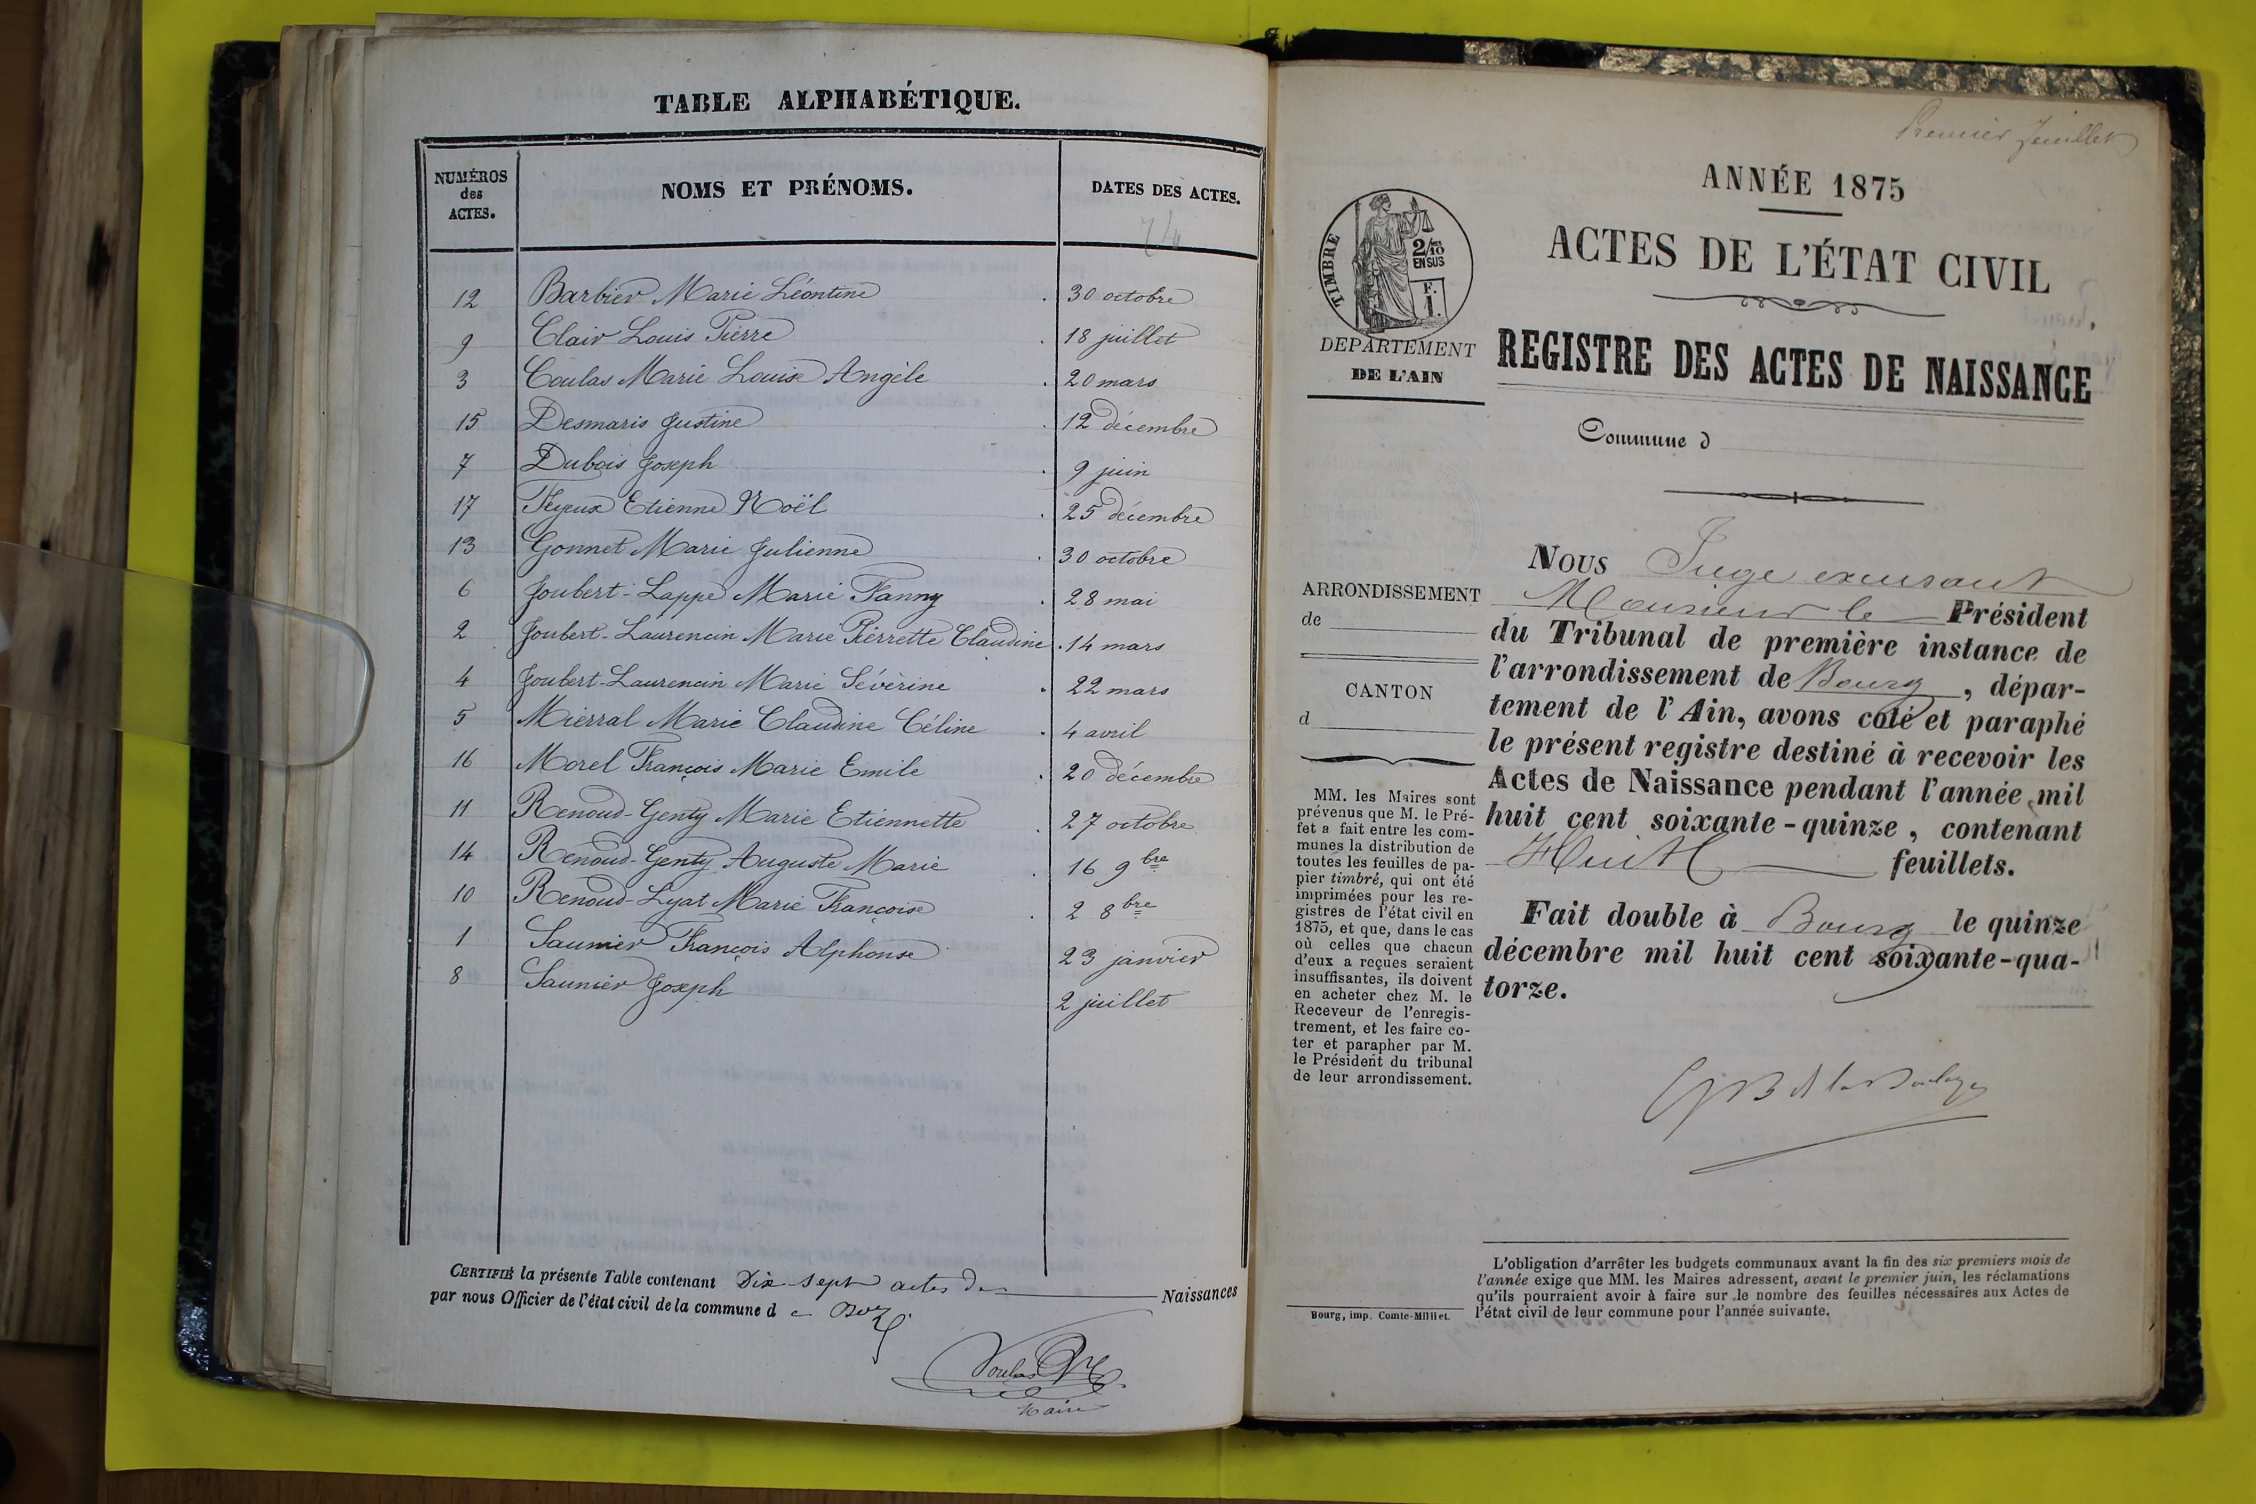 TABLE ALPHABÉTIQUE.
NUMÉROS des ACTES. NOMS ET PRÉNOMS. DATES DES ACTES.
74
12 Barbier Marie Léontine 30 octobre
9 Clair Louis Pierre 18 juillet
3 Coulas Marie Louise Angèle 20 mars
15 Desmaris Justine 12 décembre
7 Dubois Joseph 9 juin
17 Feyeux Etienne Noël 25 décembre
13 Gonnet Marie Julienne 30 octobre
6 Joubert-Lappe Marie Fanny 28 mai
2 Joubert-Laurencin Marie Pierrette Claudine 14 mars
4 Joubert-Laurencin Marie Sévérine 22 mars
5 Mierral Marie Claudine Céline 4 avril
16 Morel François Marie Emile 20 décembre
11 Renoud-Genty Marie Etiennette 27 octobre
14 Renoud-Genty Auguste Marie 16 9bre
10 Renoud-Lyat Marie Françoise 2 8bre
1 Saunier François Alphonse 23 janvier
8 Saunier Joseph 2 juillet
CERTIFIÉ la présente Table contenant Dix-sept actes de Naissances
par nous Officier de l'état civil de la commune d e Boz
Maire
Premier feuillet
ANNÉE 1875
ACTES DE L'ÉTAT CIVIL
REGISTRE DES ACTES DE NAISSANCE
Commune d
TIMBRE
2/10 EN SUS
F. 1.
DEPARTEMENT
DE L'AIN
ARRONDISSEMENT
de
CANTON
d
MM. les Maires sont
prévenus que M. le Pré-
fet a fait entre les com-
munes la distribution de
toutes les feuilles de pa-
pier timbré, qui ont été
imprimées pour les re-
gistres de l'état civil en
1875, et que, dans le cas
où celles que chacun
d'eux a reçues seraient
insuffisantes, ils doivent
en acheter chez M. le
Receveur de l'enregis-
trement, et les faire co-
ter et parapher par M.
le Président du tribunal
de leur arrondissement.
NOUS Juge excusant
Monsieur le Président
du Tribunal de première instance de
l'arrondissement de Bourg, dépar-
tement de l'Ain, avons coté et paraphé
le présent registre destiné à recevoir les
Actes de Naissance pendant l'année mil
huit cent soixante-quinze, contenant
Huit feuillets.
Fait double à Bourg le quinze
décembre mil huit cent soixante-qua-
torze.
L'obligation d'arrêter les budgets communaux avant la fin des six premiers mois de
l'année exige que MM. les Maires adressent, avant le premier juin, les réclamations
qu'ils pourraient avoir à faire sur le nombre des feuilles nécessaires aux Actes de
l'état civil de leur commune pour l'année suivante.
Bourg, imp. Comte-Milliet.